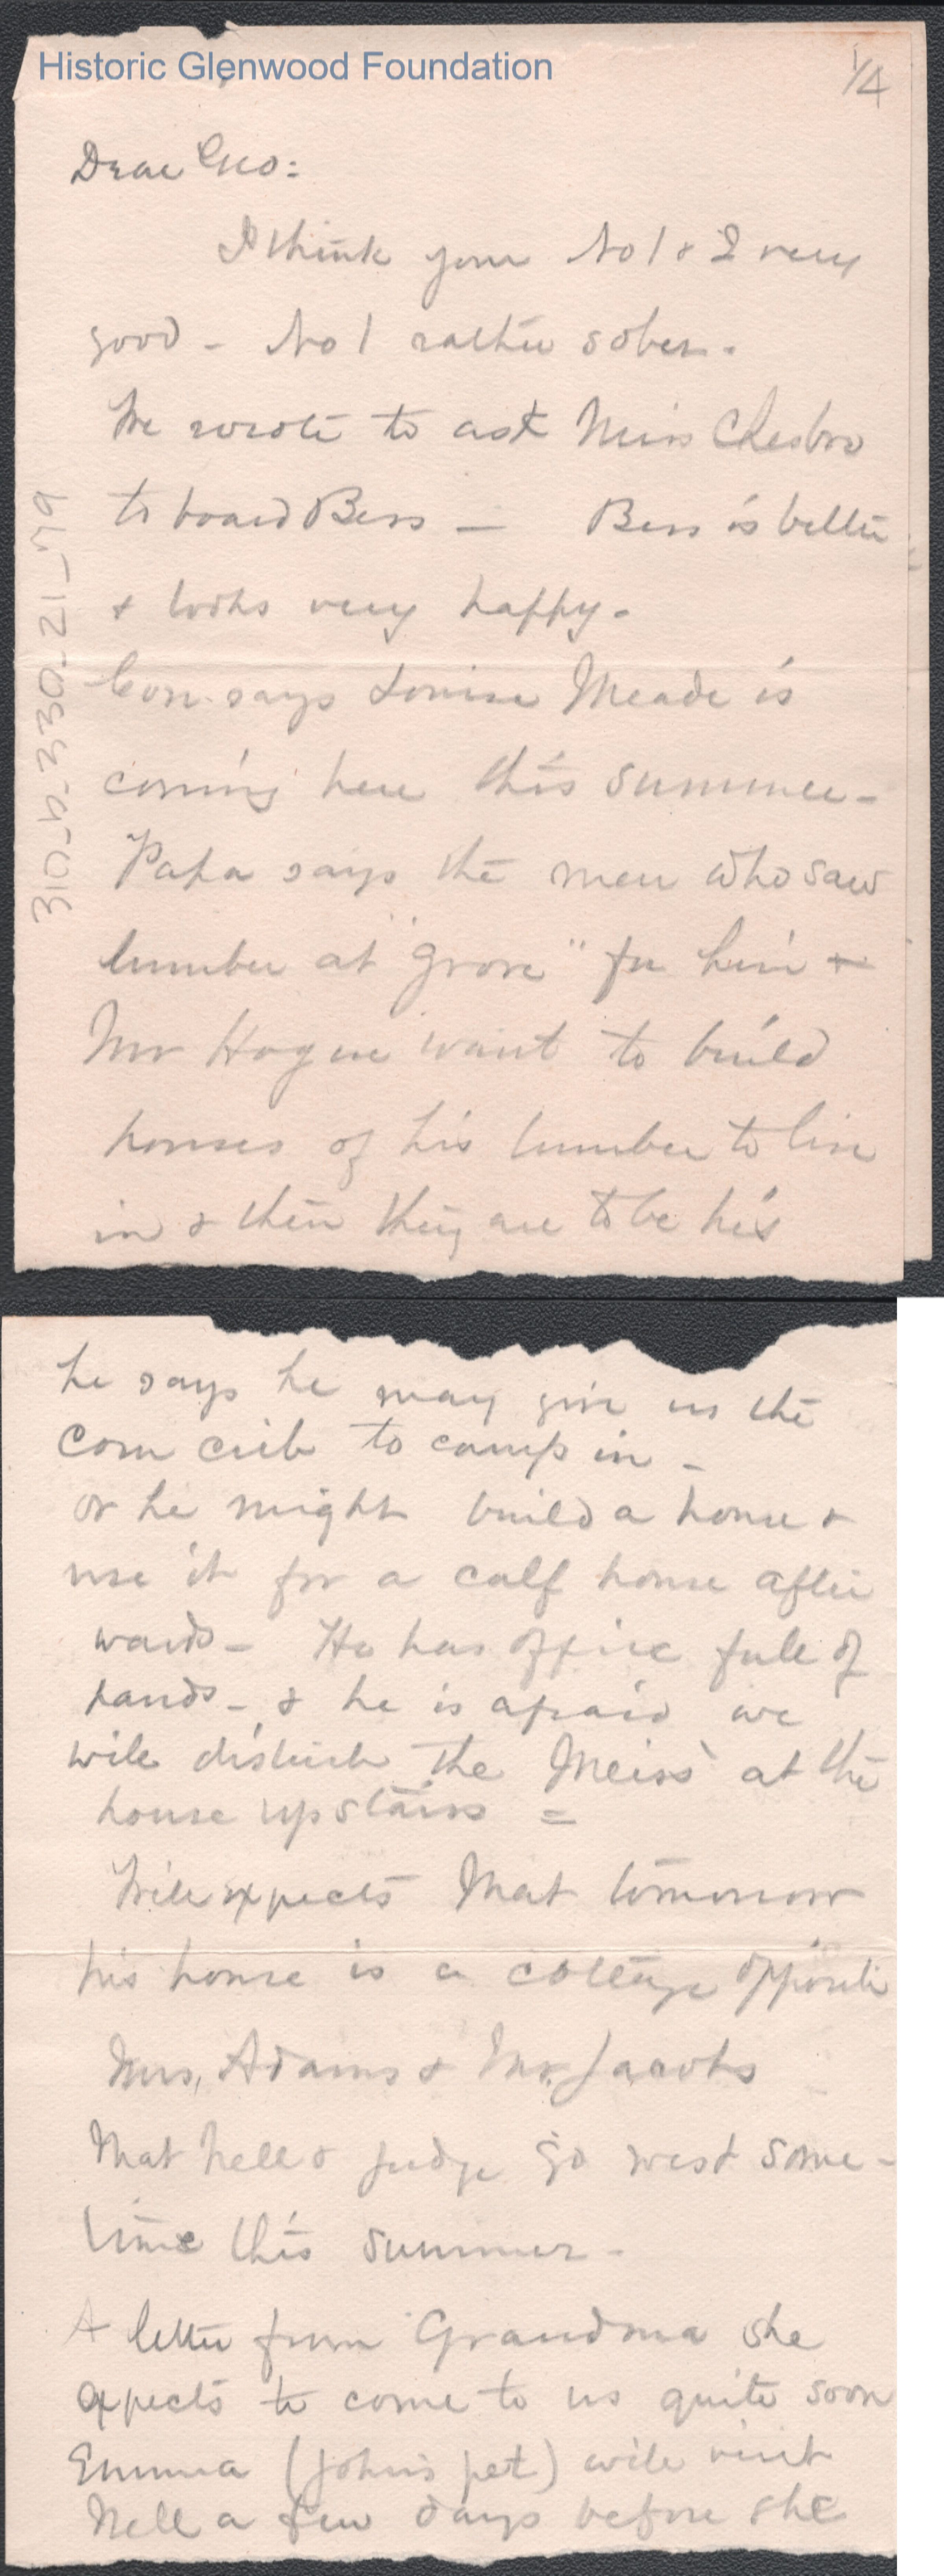 Historic Glenwood Foundation
1/4
Dear Geo:
I think your No 1 & 2 very
good - No 1 rather sober.
We wrote to ask Miss Chesbro
to board Bess - Bess is better
& looks very happy.
Con. says Louise Meade is
coming here this summer -
Papa says the men who saw
lumber at "Grove" for him +
Mr Hogue want to build
houses of his lumber to live
in & then they are to be his
310_b_330_21_79
he says he may give us the
corn crib to camp in -
or he might build a house &
use it for a calf house after
wards - He has office full of
hands - & he is afraid we
will disturb the at the
house upstairs =
Will expects Mat tomorrow
his house is a cottage opposite
Mrs, Adams & Mr. Jacobs
Mat Nell & Judge go west some-
time this summer -
A letter from Grandma she
expects to come to us quite soon
Emma (John's pet) will visit
Nell a few days before she